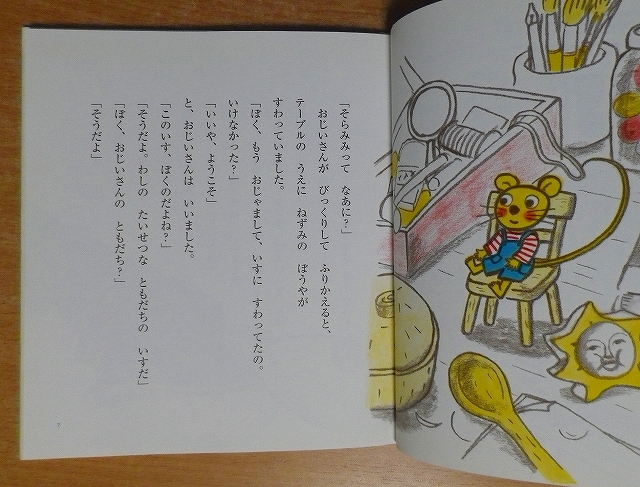 「そらみみって なあに?」
おじいさんが びっくりして ふりかえると、
テーブルの うえに ねずみの ぼうやが
すわっていました。
「ぼく、もう おじゃまして、いすに すわってたの。
いけなかった?」
「いいや、ようこそ」
と、おじいさんは いいました。
「このいす、ぼくのだよね?」
「そうだよ。わしの たいせつな ともだちの いすだ」
「ぼく、おじいさんの ともだち?」
「そうだよ」
7